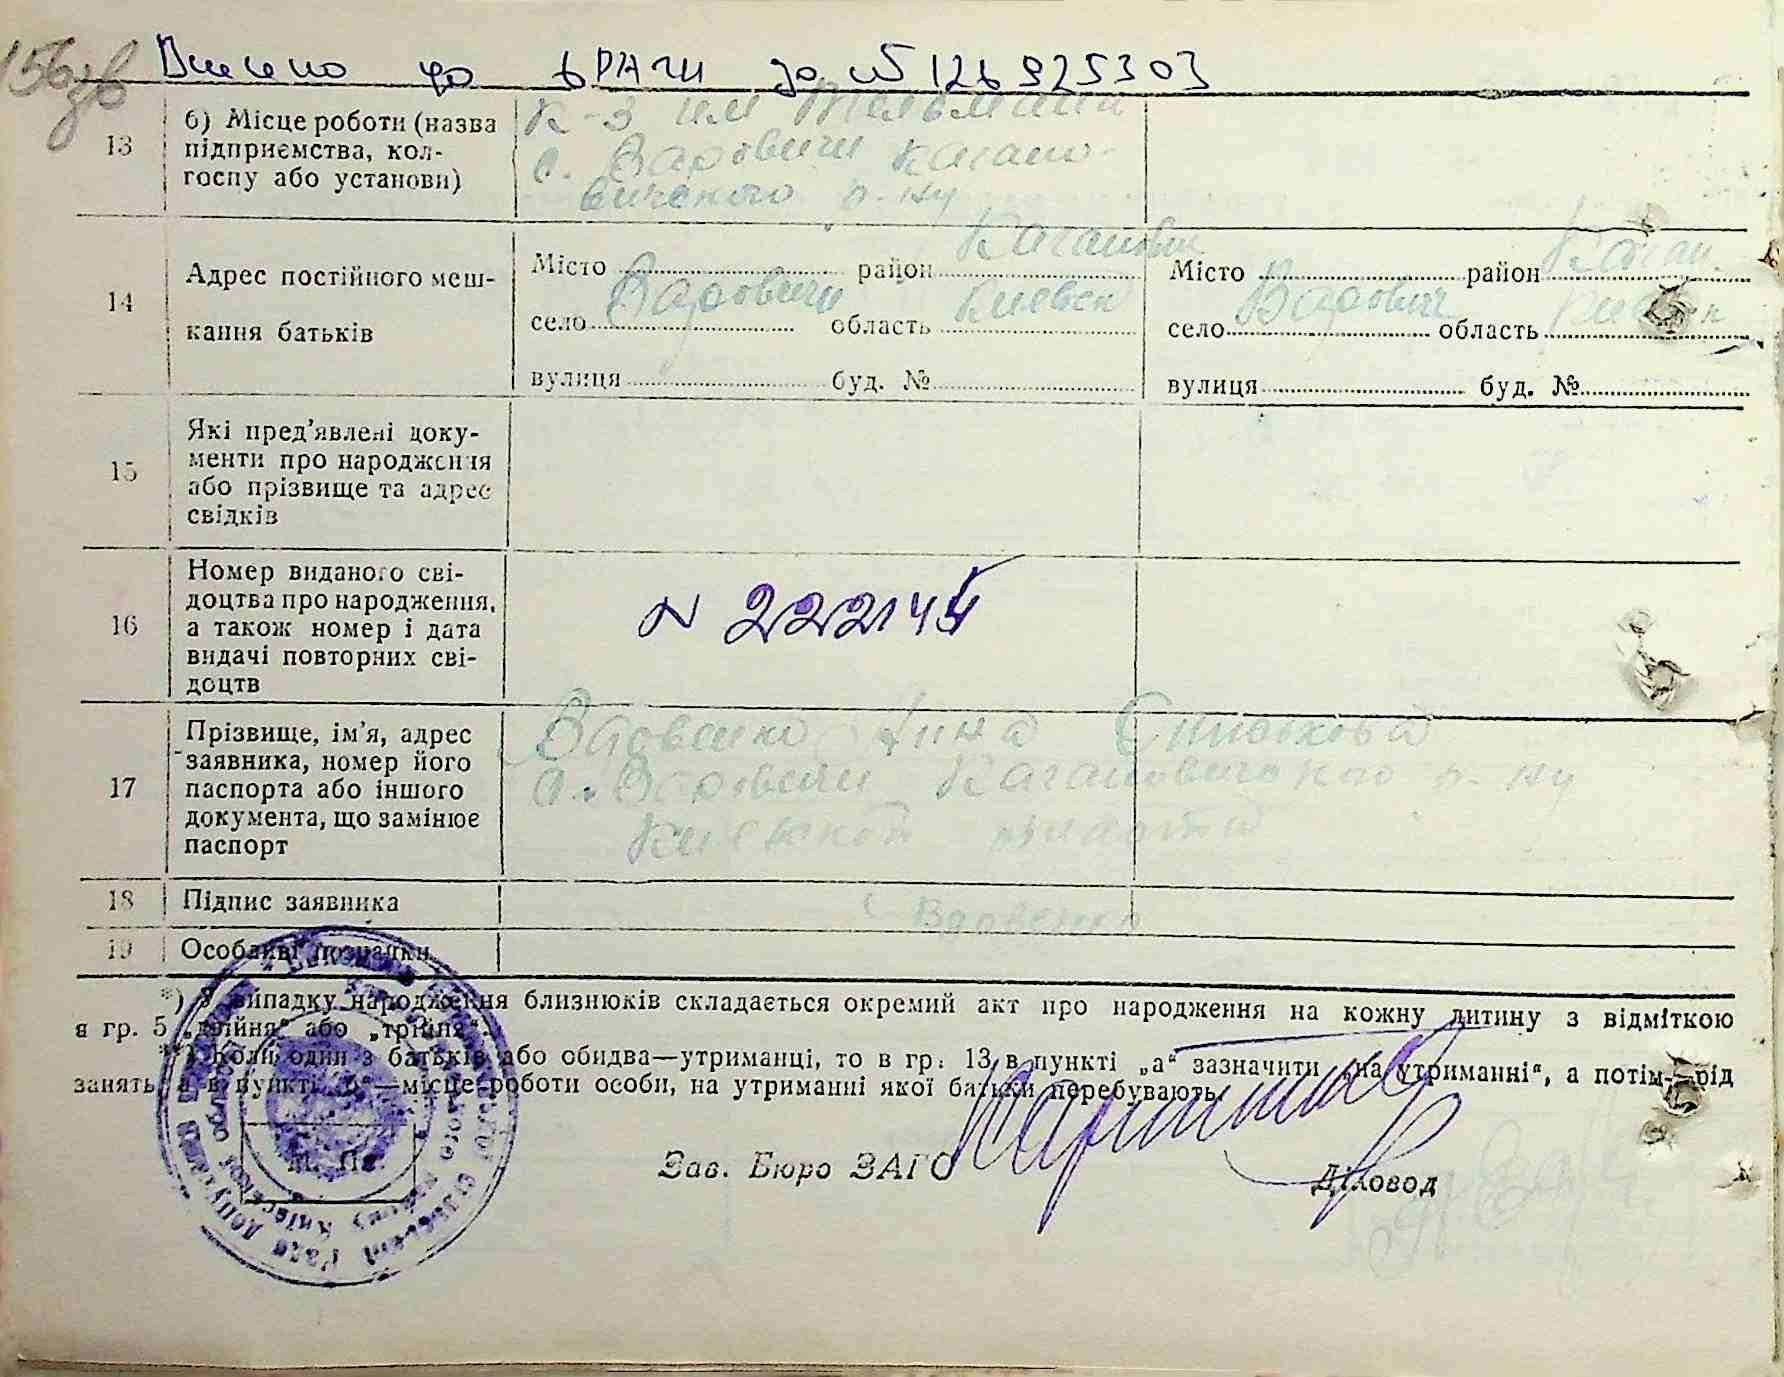 156зв
Внесено до ДРАЦГ за № 126925303
13
б) Місце роботи (назва
підприємства, кол-
госпу або установи)
к-з им Тельмана
с. Варовичи Кагано-
вичского р-ну
14
Адрес постійного меш-
кання батьків
Місто район Каганович
село Варовичи область Киевск
вулиця буд. №
Місто район Каган.
село Варович область Киевск
вулиця буд. №
15
Які пред'явлені доку-
менти про народження
або прізвище та адрес
свідків
16
Номер виданого сві-
доцтва про народження,
а також номер і дата
видачі повторних сві-
доцтв
N 222144
17
Прізвище, ім'я, адрес
заявника, номер його
паспорта або іншого
документа, що замінює
паспорт
Вдовенко
с. Варовичи Кагановичского р-ну
Киевской области
18
Підпис заявника
Вдовенко
19
Особливі позначки
*) У випадку народження близнюків складається окремий акт про народження на кожну дитину з відміткою
в гр. 5 „двійня" або „трійня".
**) Коли один з батьків або обидва—утриманці, то в гр. 13 в пункті „а" зазначити „на утриманні", а потім—рід
занять, а в пункті „б"—місце роботи особи, на утриманні якої батьки перебувають.
М. П.
Зав. Бюро ЗАГС
Діловод